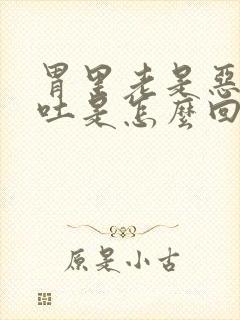 胃里老是惡
吐是怎麼回
原是小古